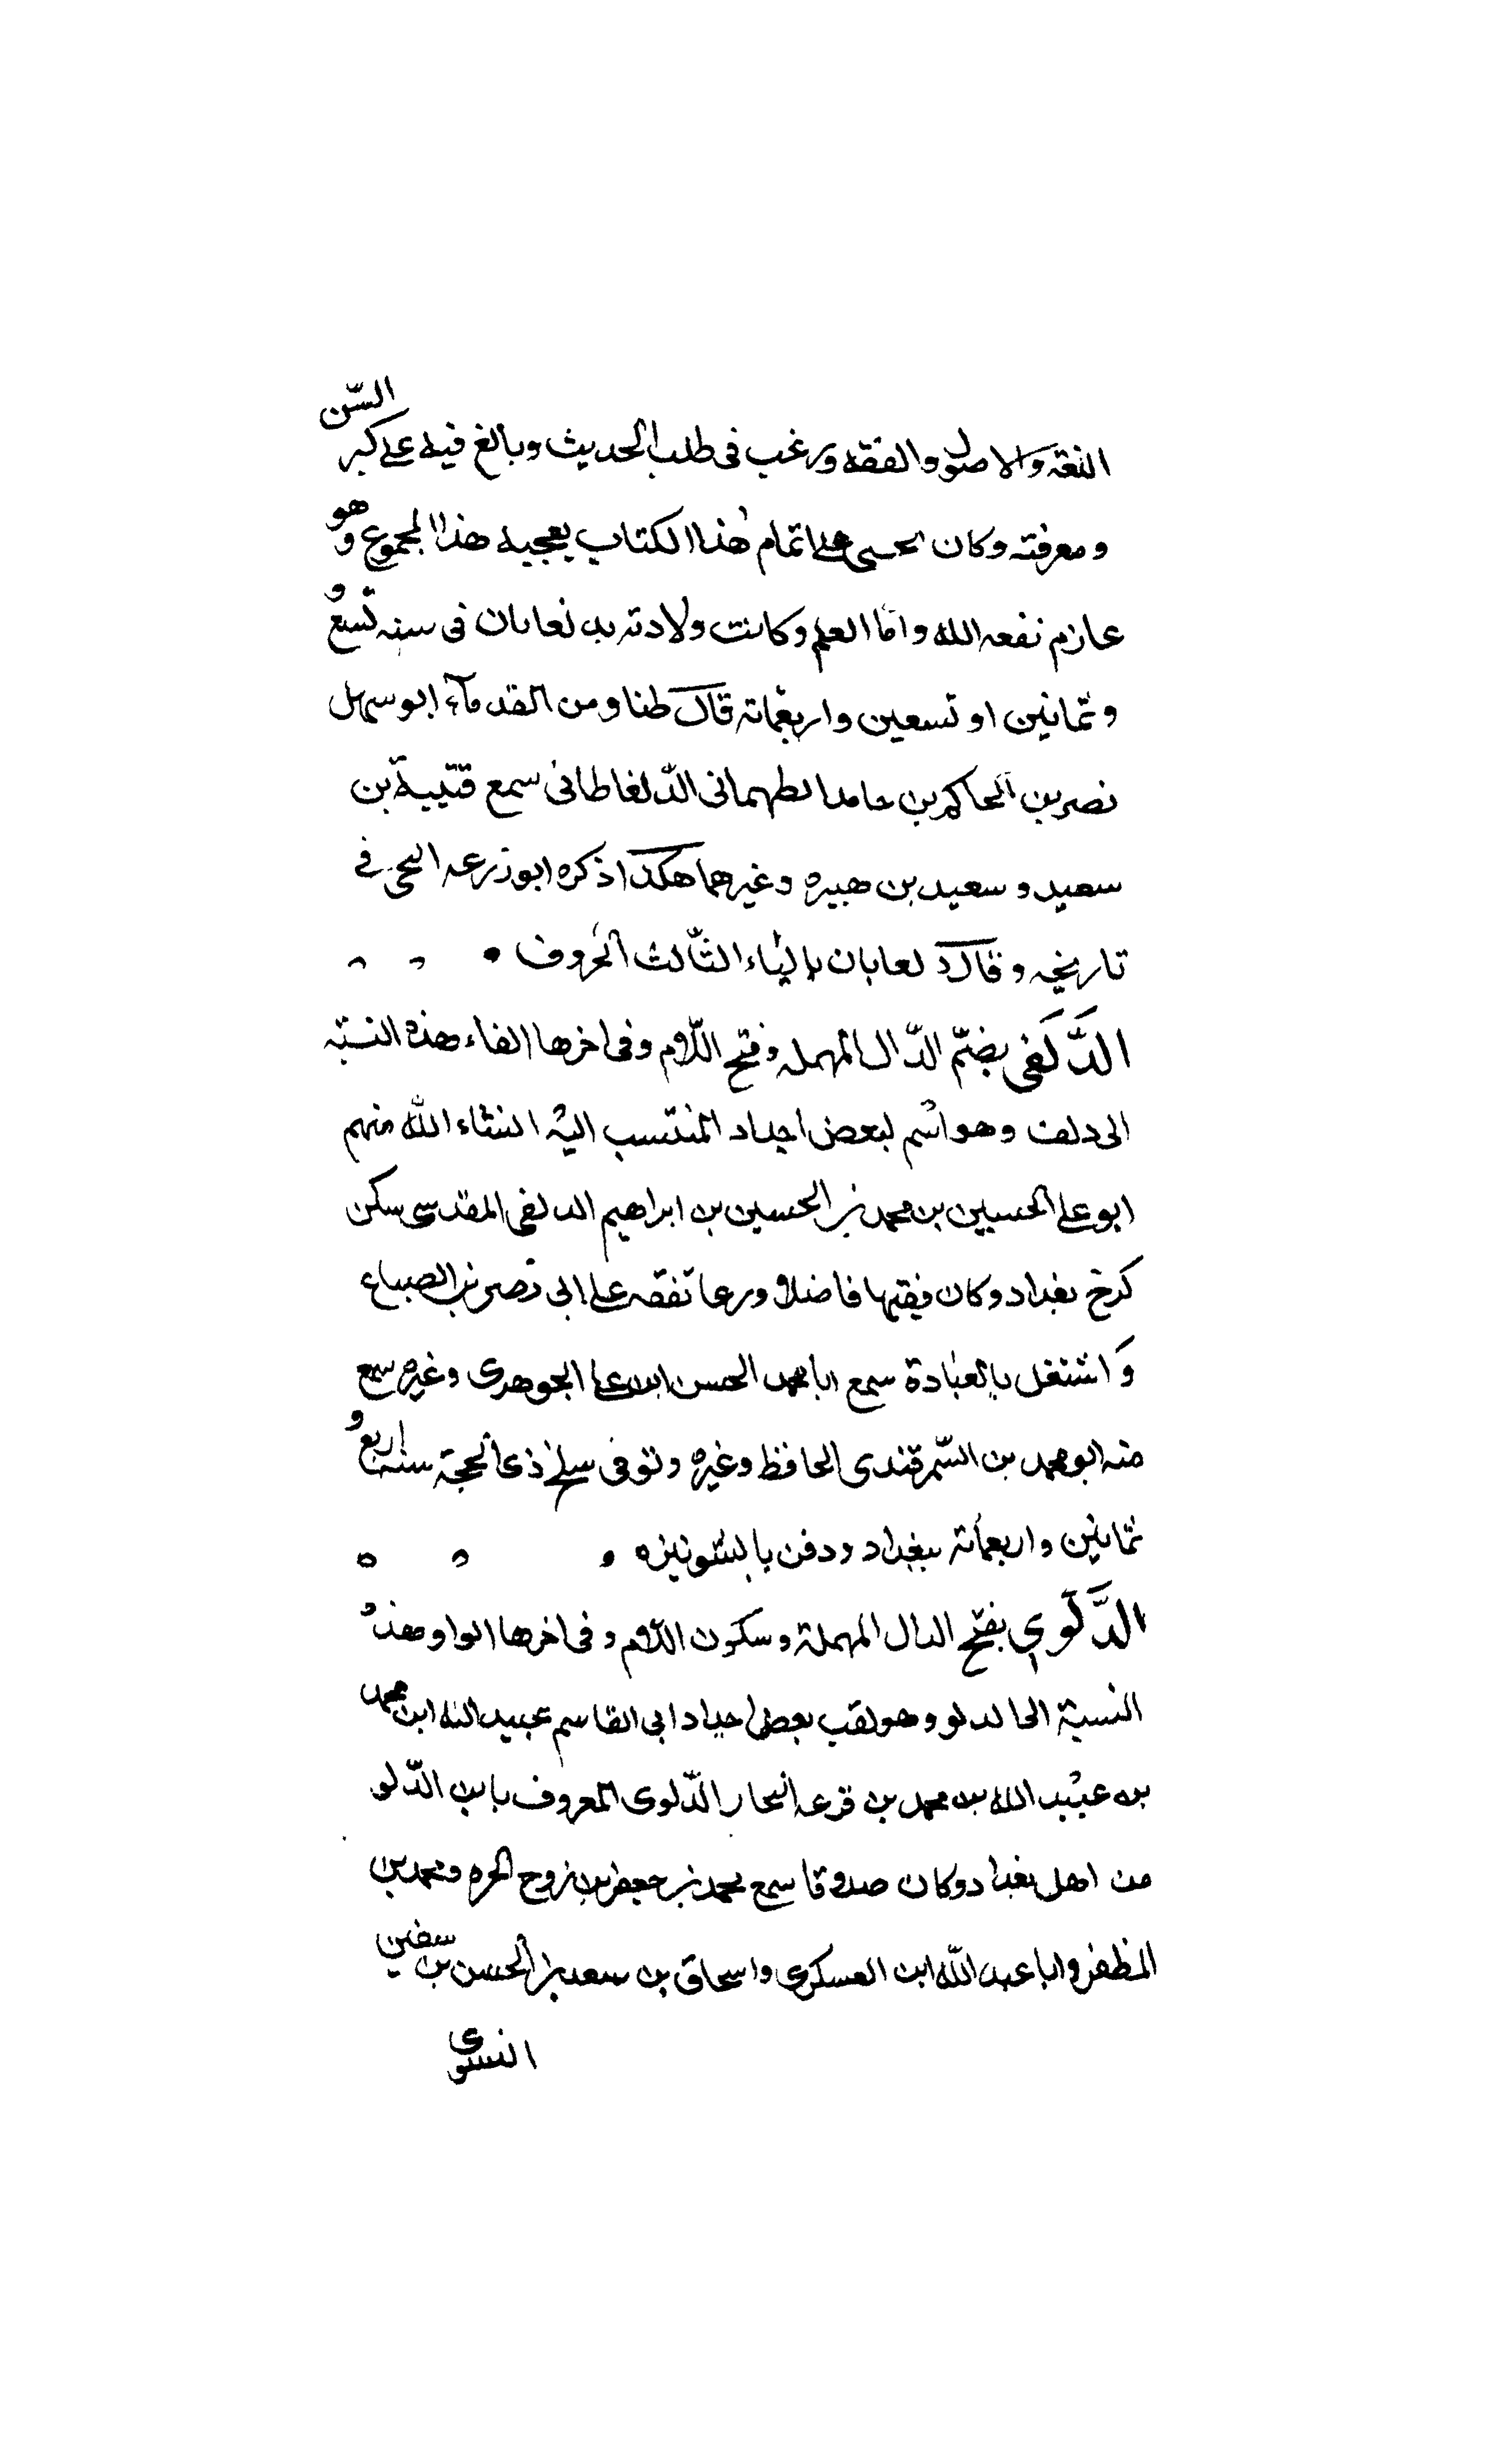 اللغة والاصول والفقه ورغب فى طلب الحديث وبالغ فيه على كبر السّن
ومعرفته وكان يحسى على اتمام هٰذا الكتاب يعجبه هذا المجموع وهو
عازم نفعه الله وامّا العلم وكانت ولادته فى سنه تسع و
وثمانين او تسعين واربعمائة قال طنا ومن القدمآء ابو سهل
نصر بن الحاكم بن حامد الطهمانى الدّلغاطانى سمع قتيبة بن
سعيد و سعيد بن هبيره وغيرهما هكذا ذكره ابو زرعه السحى فى
تاريخه وقال دلعابان بالياء الثّالث الحروف
الدَّلَفى بضمّ الدّال المهمله وفتح اللّام وفى اخرها الفاء هذه النسبة
الى دلف وهو اسْم لبعض اجداد المنتسب اليهْ انشاء الله منهم
ابو على الحسين بن محمد بن الحسين بن ابراهيم الدلفى المقدسى سكن
كرخ بغداد وكان فقيها فاضلا ورعا تفقه على ابى نصر بن الصباع
وَاشتغل بالعبادة سمع ابا محمد الحسن ابن على الجوهرى وغيره سمع
منه ابو محمد بن السّمرقندى الحافظ وغيره وتوفى سلخ ذى الحجة سنه اربع و
ثمانين واربعمائة ببغداد ودفن بالشونيزه
الدَّلَوي بفتح الدال المهملة وسكون اللّام وفى اخرها الواو هذهْ
النسبة الى الدلو وهو لقب بعض اجداد ابى القاسم عبيد الله ابن محمد
بن عبيْد الله بن محمد بن قرعه النجار الدّلوى المعروف بابن الدّلو
من اهل بغداد وكان صدوقا سمع محمد بن جعفر بن زوج الحره ومحمد بن
المظفر وابا عبد اللّه ابن العسكرى واسحاق بن سعد بن الحسن بن سفين
النسوى